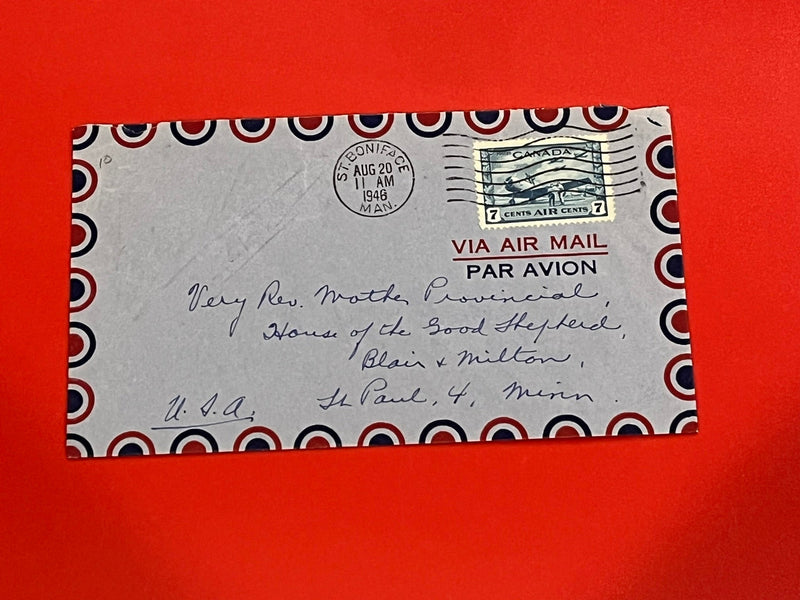 10
ST. BONIFACE
AUG 20
11 AM
1946
MAN.
CANADA
7 CENTS AIR CENTS 7
VIA AIR MAIL
PAR AVION
Very Rev. Mother Provincial,
House of the Good Shepherd,
Blair & Milton,
St Paul, 4, Minn.
U.S.A.